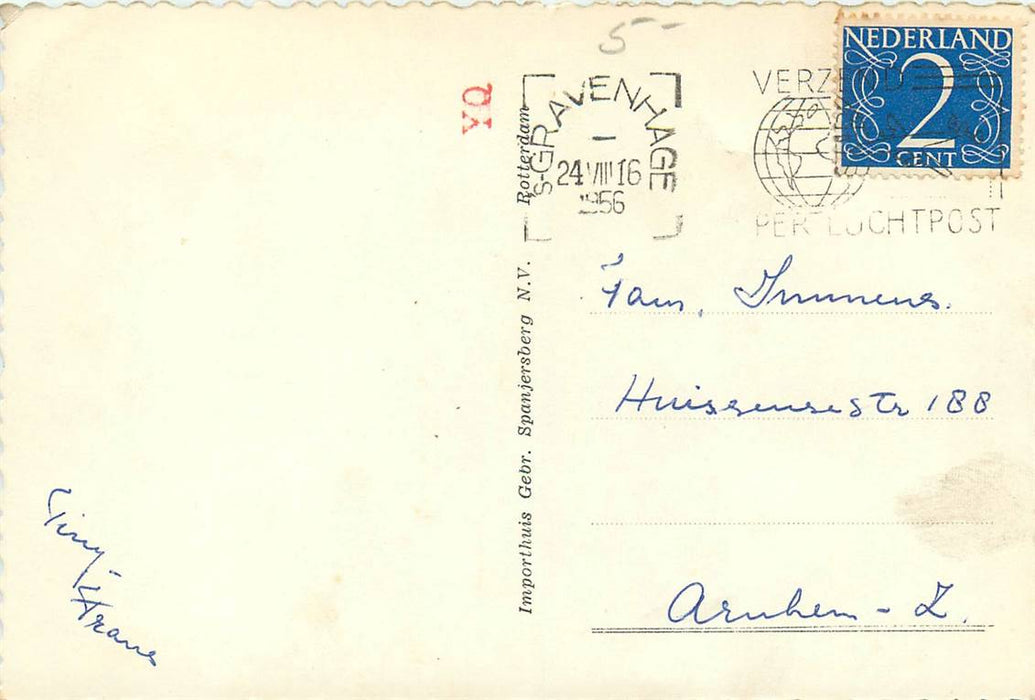 5-
YQ
'S-GRAVENHAGE
24 VIII 16
1956
VERZEND
PER LUCHTPOST
NEDERLAND
2
CENT
Importhuis Gebr. Spanjersberg N.V. Rotterdam
Fam. Immens.
Huissensestr 188
Arnhem - Z.
Tiny -
Frans